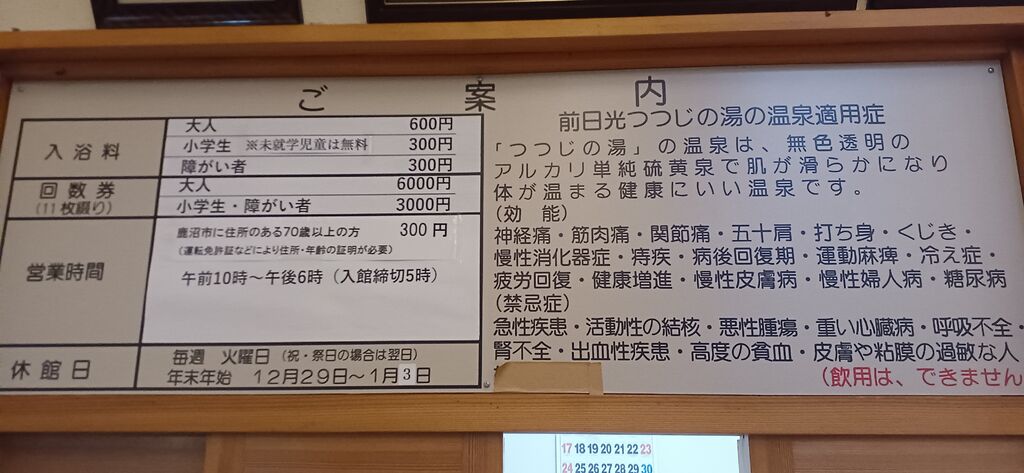 ご案内
入浴料
大人 600円
小学生 ※未就学児童は無料 300円
障がい者 300円
回数券
(11枚綴り)
大人 6000円
小学生・障がい者 3000円
営業時間
鹿沼市に住所のある70歳以上の方 300円
(運転免許証などにより住所・年齢の証明が必要)
午前10時〜午後6時（入館締切5時）
休館日
毎週 火曜日（祝・祭日の場合は翌日）
年末年始 12月29日〜1月3日
前日光つつじの湯の温泉適用症
「つつじの湯」の温泉は、無色透明の
アルカリ単純硫黄泉で肌が滑らかになり
体が温まる健康にいい温泉です。
（効 能）
神経痛・筋肉痛・関節痛・五十肩・打ち身・くじき・
慢性消化器症・痔疾・病後回復期・運動麻痺・冷え症・
疲労回復・健康増進・慢性皮膚病・慢性婦人病・糖尿病
（禁忌症）
急性疾患・活動性の結核・悪性腫瘍・重い心臓病・呼吸不全・
腎不全・出血性疾患・高度の貧血・皮膚や粘膜の過敏な人
（飲用は、できません
17 18 19 20 21 22 23
24 25 26 27 28 29 30